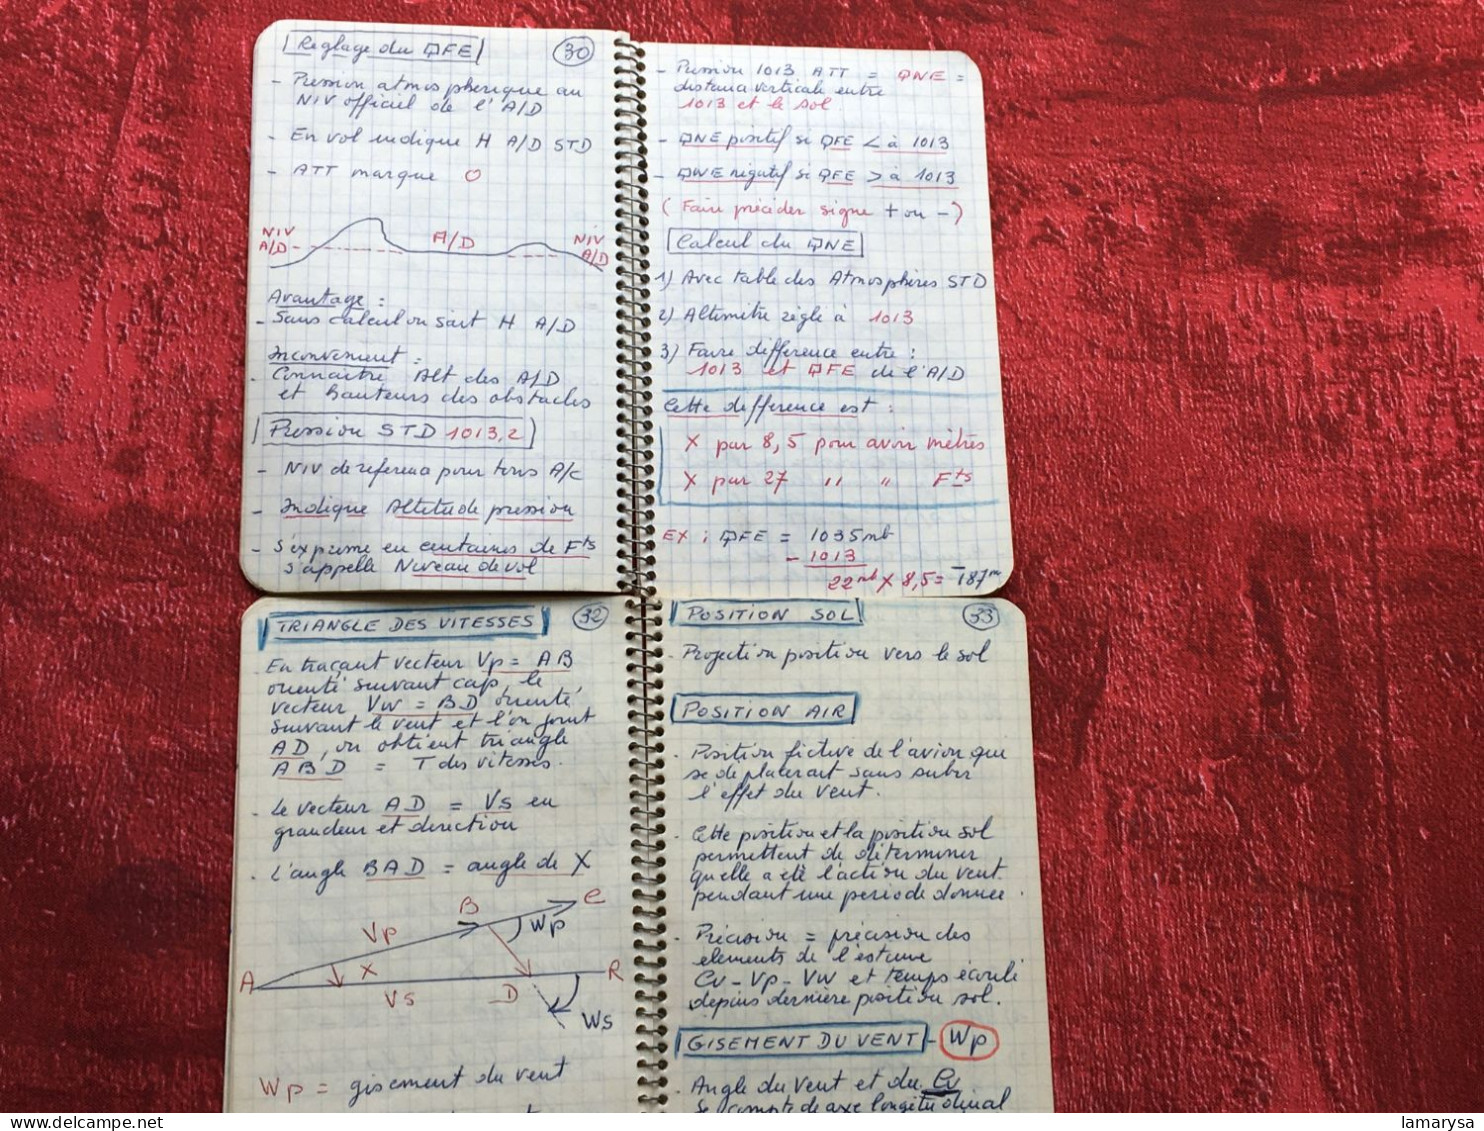 Reglage du QFE
30
- Pression atmospherique au
NIV officiel de l'A/D
- En vol indique H A/D STD
- ATT marque O
NIV
A/D
A/D
NIV
A/D
Avantage :
- Sans calcul on sait H A/D
Inconvenient :
- Connaitre Alt des A/D
et hauteurs des obstacles
Pression STD 1013,2
- NIV de reference pour tous A/C
- Indique Altitude pression
- S'exprime en centaines de Fts
s'appelle Niveau de vol
- Pression 1013 ATT = QNE =
distance verticale entre
1013 et le sol
- QNE positif si QFE < à 1013
- QNE négatif si QFE > à 1013
(Faire précéder signe + ou -)
Calcul du QNE
1) Avec table des Atmosphères STD
2) Altimètre réglé à 1013
3) Faire difference entre :
1013 et QFE de l'A/D
Cette difference est :
X par 8,5 pour avoir mètres
X par 27 " " Fts
EX : QFE = 1035 mb
- 1013
22 mb X 8,5 = -187m
TRIANGLE DES VITESSES
32
En traçant vecteur Vp = AB
orienté suivant cap, le
vecteur VW = BD orienté
suivant le vent et l'on joint
AD, on obtient triangle
ABD = T des vitesses.
- Le vecteur AD = Vs en
grandeur et direction
- L'angle BAD = angle de X
A
Vp
B
C
Wp
X
Vs
D
R
Ws
Wp = gisement du vent
POSITION SOL
33
- Projection position vers le sol
POSITION AIR
- Position fictive de l'avion que
se deplacerait sans subir
l'effet du vent.
- Cette position et la position sol
permettent de déterminer
quelle a été l'action du vent
pendant une periode donnee.
- Précision = précision des
elements de l'estime
Cv - Vp - VW et temps écoulé
depuis dernière position sol.
GISEMENT DU VENT - Wp
- Angle du vent et du Cv
Se compte de axe longitudinal
lamarysa